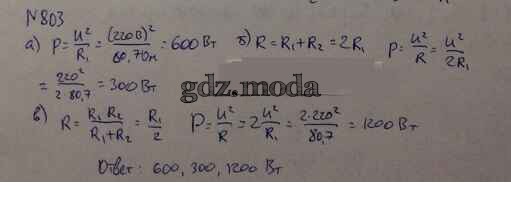 N803
а) P = U²/R₁ = (220В)²/80,7Ом = 600 Вт б) R = R₁ + R₂ = 2R₁ P = U²/R = U²/2R₁
= 220²/2·80,7 = 300 Вт
gdz.moda
в) R = R₁R₂/R₁+R₂ = R₁/2 P = U²/R = 2U²/R₁ = 2·220²/80,7 = 1200 Вт
Ответ: 600, 300, 1200 Вт